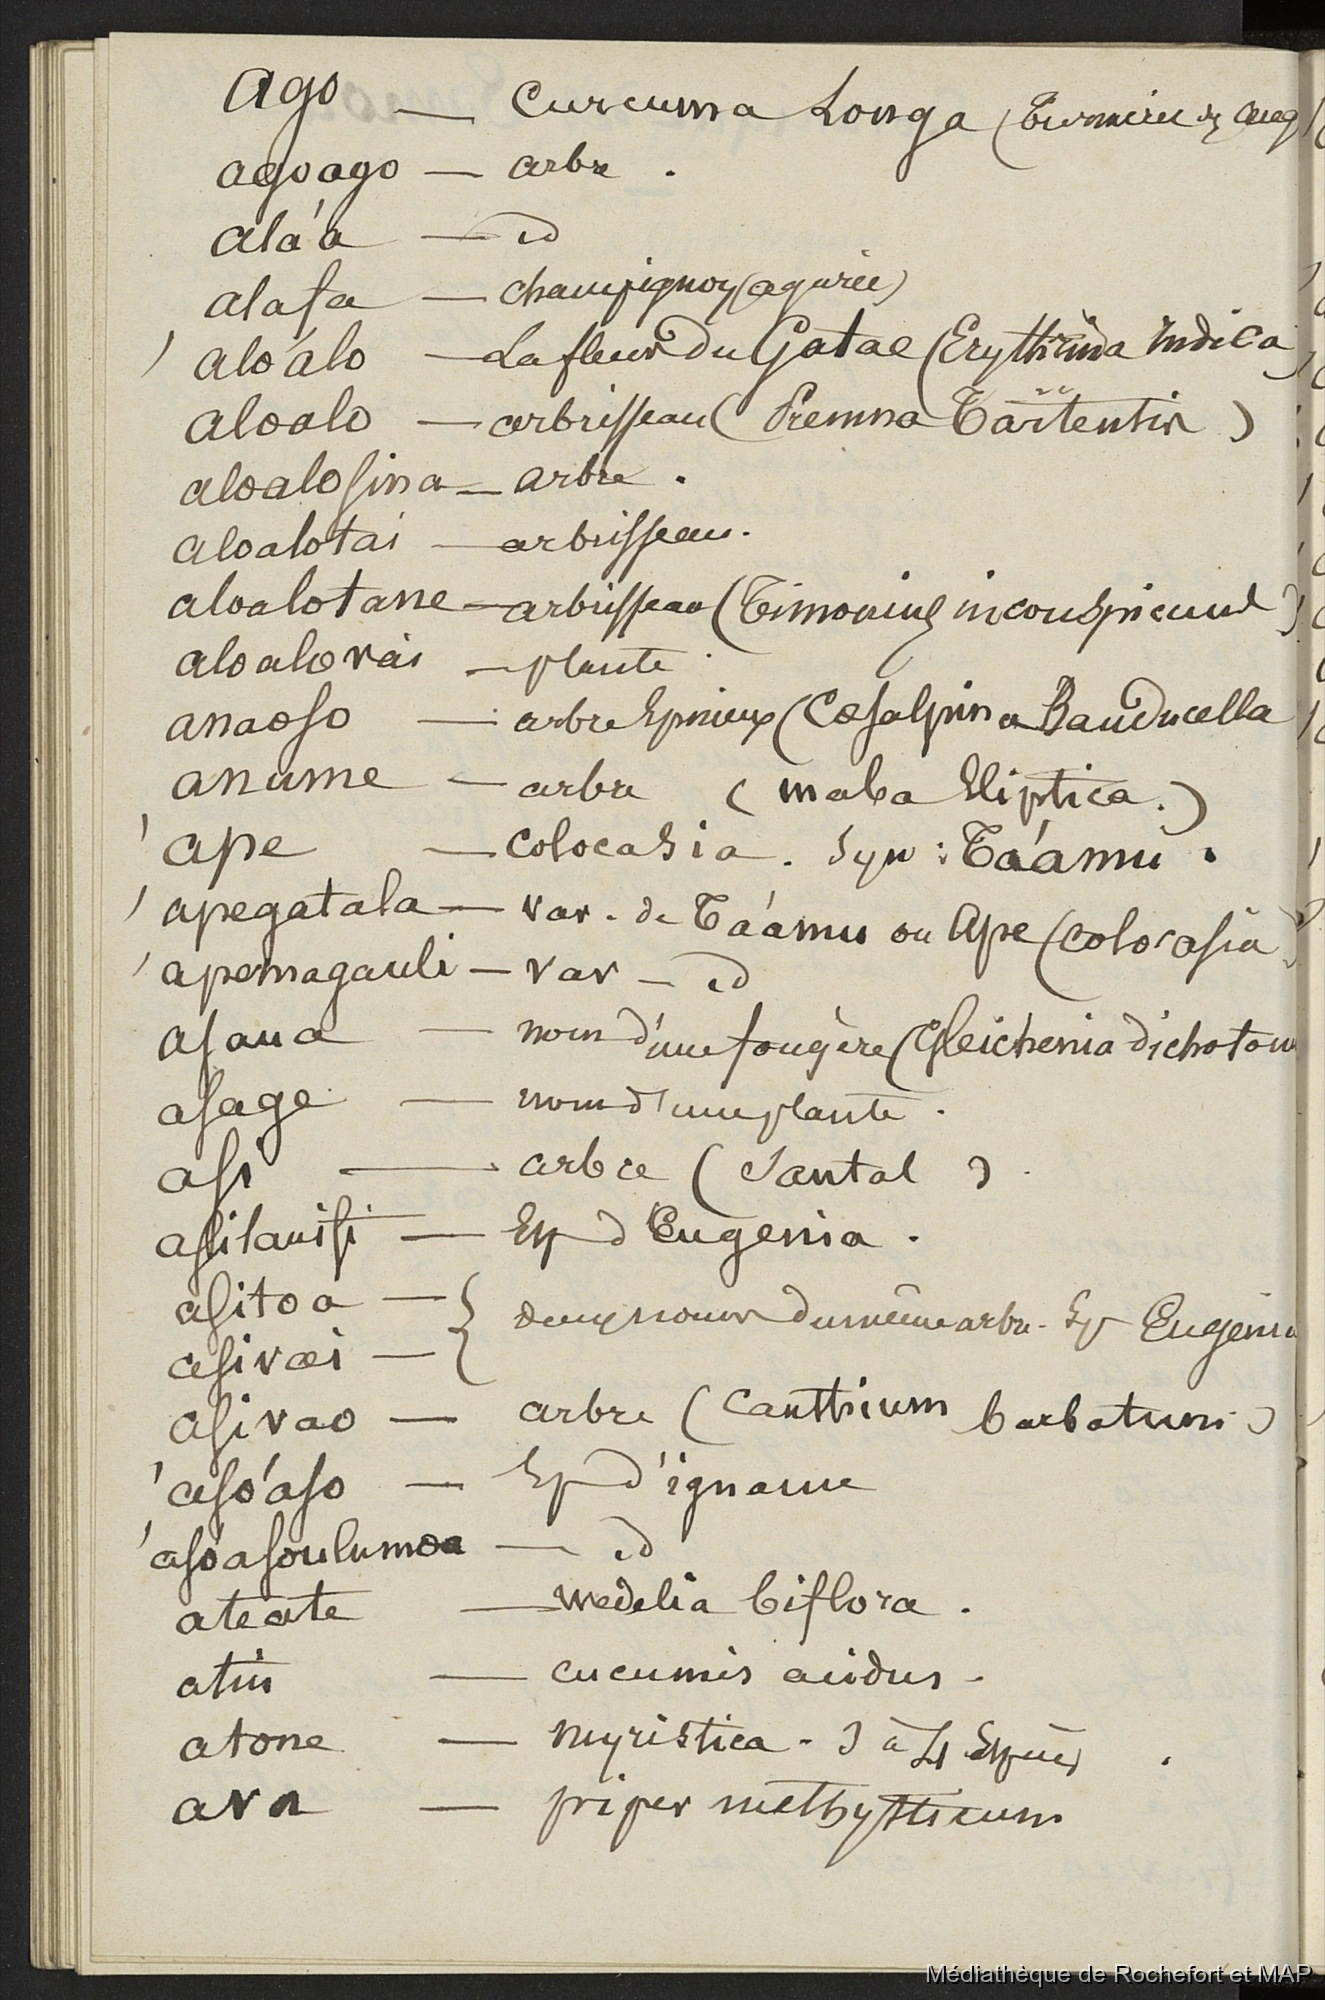 Ago — Curcuma Longa (Turmeric des Ang
agoago — arbre .
alá'a — id
alafa — champignon (agaric)
' aloálo — La fleur du Gatae (Erythrina Indica)
aloalo — arbrisseau (Premna Taïtensis)
aloalosina — arbre .
aloalotai — arbrisseau.
aloalotane — arbrisseau (Timonius inconspicuus)
aloalovai — plante .
anaoso — arbre Epineux (Cæsalpina Bauducella
anume — arbre (maba Eliptica.)
'ape — colocasia . Syn : Ta'amu .
'apegatala — var. de Ta'amu ou Ape (colocasia)
'apemagauli — var — id
asaua — nom d'une fougère (Gleichenia dichotom
asage — nom d'une plante .
asi — arbre (Santal)
asilanisi — Esp d'Eugenia .
asitoa — { deux noms du même arbre. Esp Eugenia
asivai —
asivao — arbre (Canthium barbatum)
'asó'aso — Esp d'igname
'asóasoulumoa — id
ateate — Wedelia biflora .
atiu — cucumis acidus .
atone — myristica . 3 à 4 Espèces .
ava — piper methysticum
Médiathèque de Rochefort et MAP